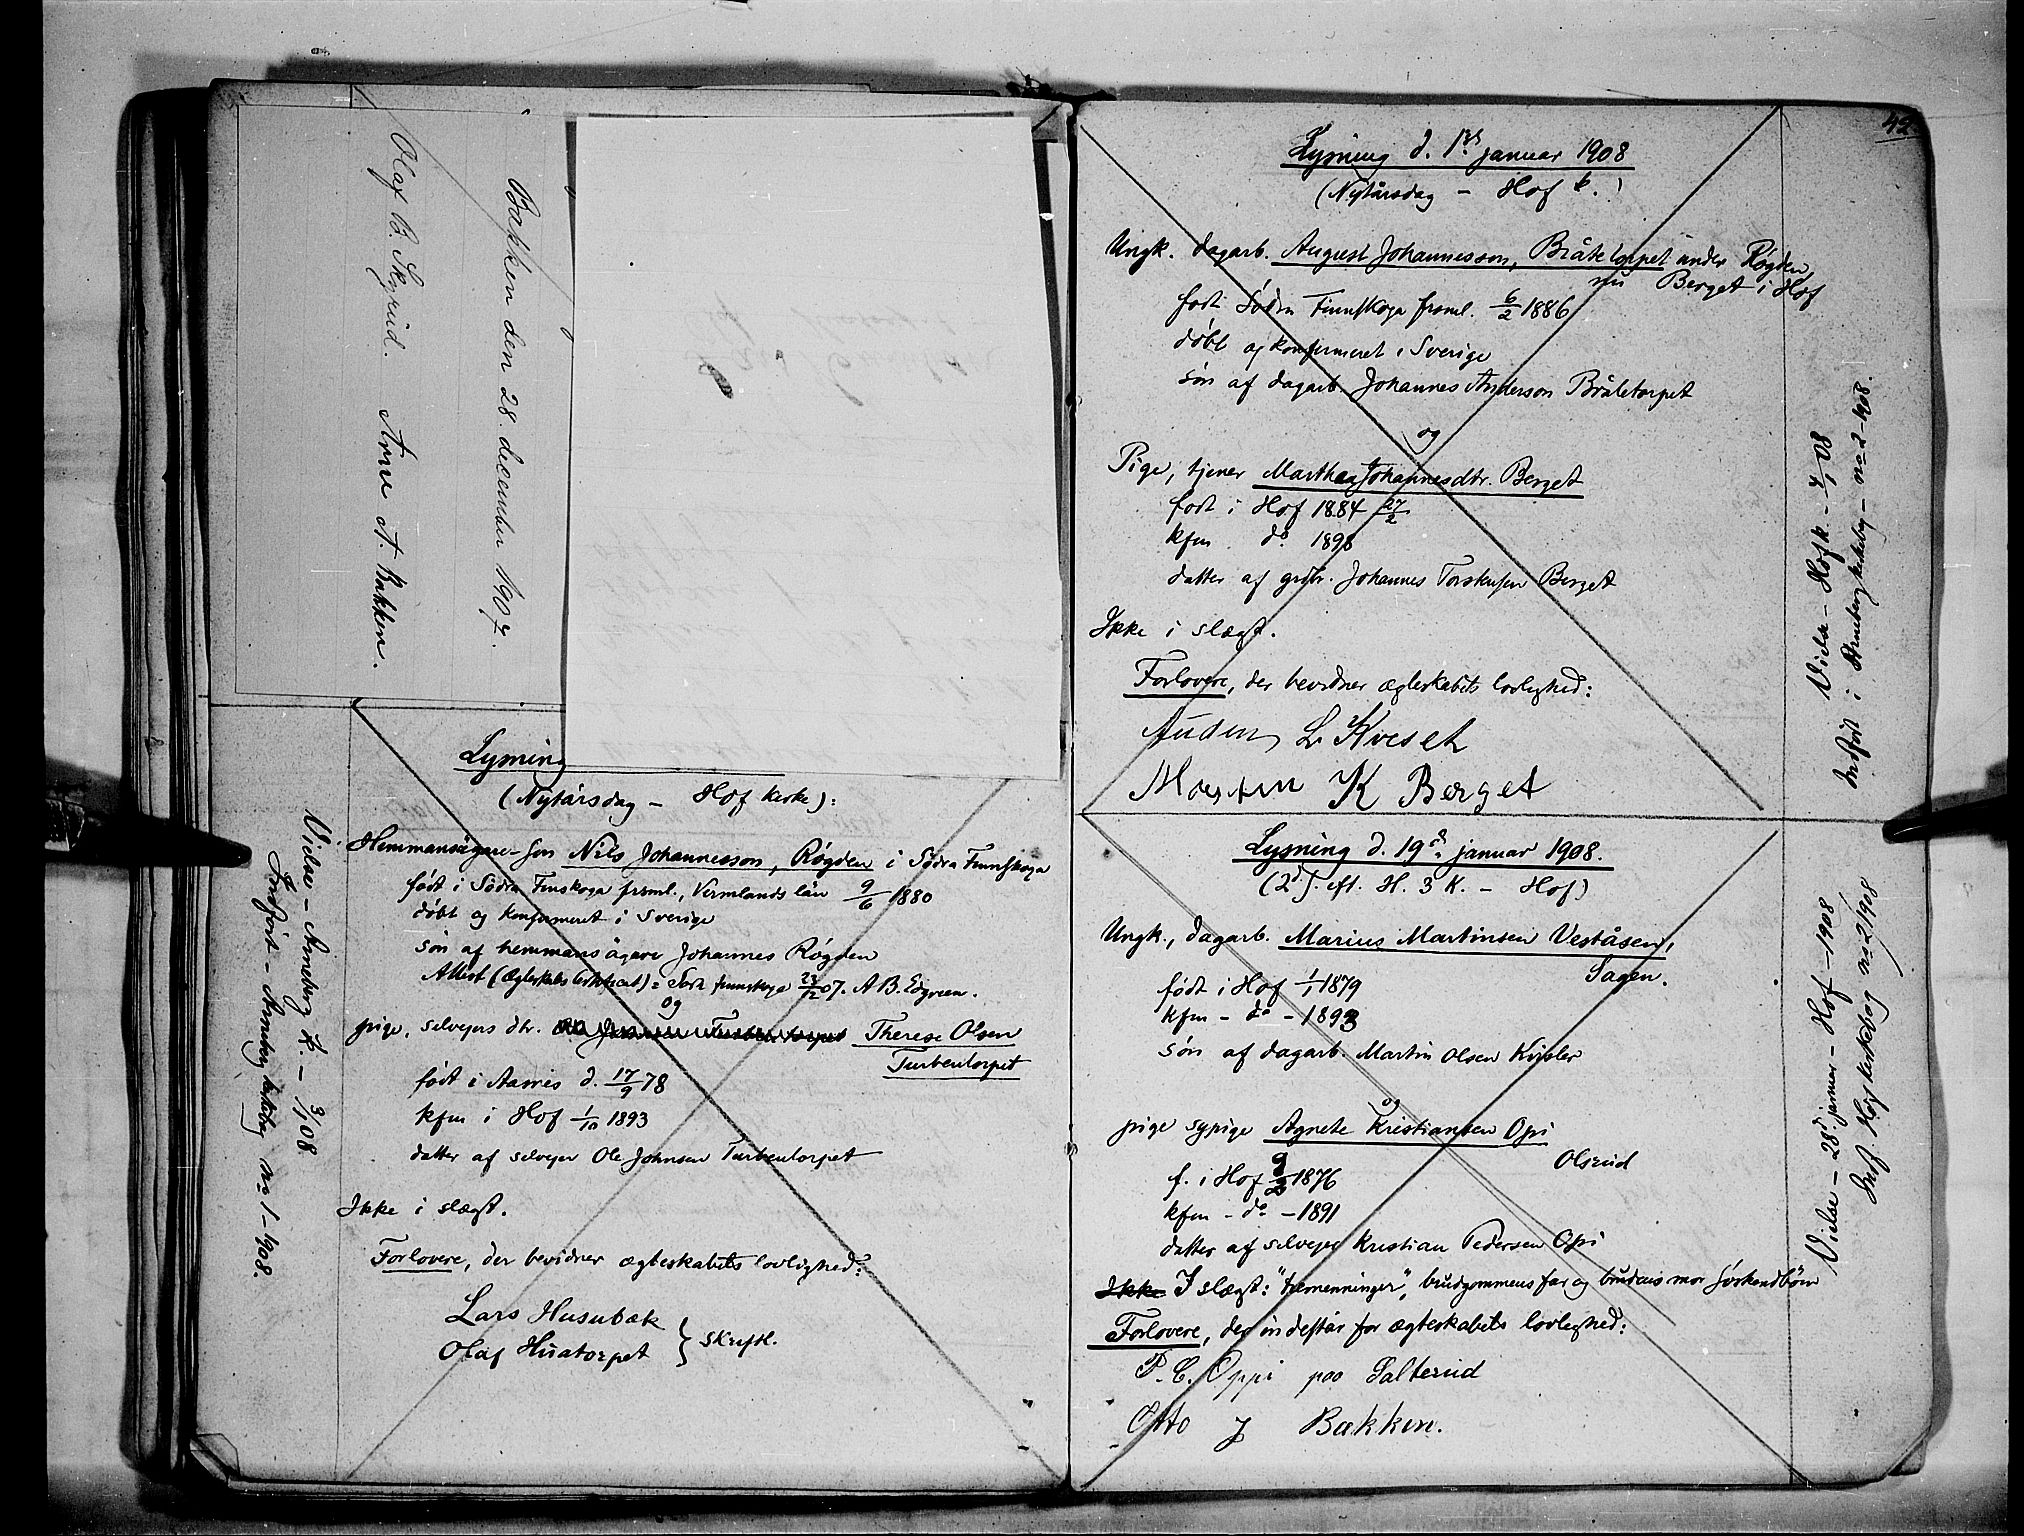 Bakken den 28. december 1907.
Olaf B. Skyrud. Arne A. Bakken.
Lysning
(Nytårsdag – Hof kirke):
Hemmansägare-søn Nils Johannesson, Røgden i Södra Finnskoga
født i Södra Finskoga frsml., Vermlands län 9/6 1880
döbt og konfirmeret i Sverige
søn af hemmansägare Johannes Røgden
Attest (Ægteskabs certificat) = Södr. finnskoga 23/12 07. A B. Edgreen.
og
pige, selveiers dtr. Therese Olsen
Turbentorpet
født i Aasnes d. 17/9 78
kfm i Hof 1/10 1893
datter af selveier Ole Johnsen Turbentorpet
Ikke i slægt.
Forlovere, der bevidner ægteskabets lovlighed:
Lars Husubæk
Olaf Huatorpet } skriftl.
Vielse – Arneberg k. – 3/1 08
Indført – Arneberg kirkebog no 1 – 1908.
42
Lysning d. 1ste januar 1908
(Nytårsdag – Hof k.)
Ungk. dagarb. August Johannesson, Bråtetorpet under Røgden,
nu Berget i Hof
født Södra Finnskoga frsml. 6/2 1886
döbt og konfirmeret i Sverige
søn af dagarb. Johannes Anderson Bråtetorpet
og
Pige, tjener Marthea Johannesdtr. Berget
født i Hof 1884 27/2
kfm do 1898
datter af grdbr. Johannes Torstensen Berget
Ikke i slægt.
Forlovere, der bevidner ægteskabets lovlighed:
Auden L Kveset
Morten K Berget
Vielse – Hof k. – 4/1 08
Indført i Arneberg kirkebog – no 2 – 1908.
Lysning d. 19de januar 1908.
(2d S. eft. H. 3 K. – Hof)
Ungk., dagarb. Marius Martinsen Veståsen,
Sagen.
født i Hof 1/1 1879
kfm – do – 1893
søn af dagarb. Martin Olsen Kjisler
og
pige sypige Agnete Kristiansen Opi
Olsrud
f. i Hof 9/3 1876
kfm – do – 1891
datter af selveier Kristian Pedersen Opi
Ikke I slægt: "tremenninger", brudgommens far og brudens mor sørkendbørn
Forlovere, der indestår for ægteskabets lovlighed:
P. C. Oppi paa Salterud
Otto J Bakken.
Vielse – 28d januar – Hof – 1908
Indf. Hofs kirkebog no 2/1908